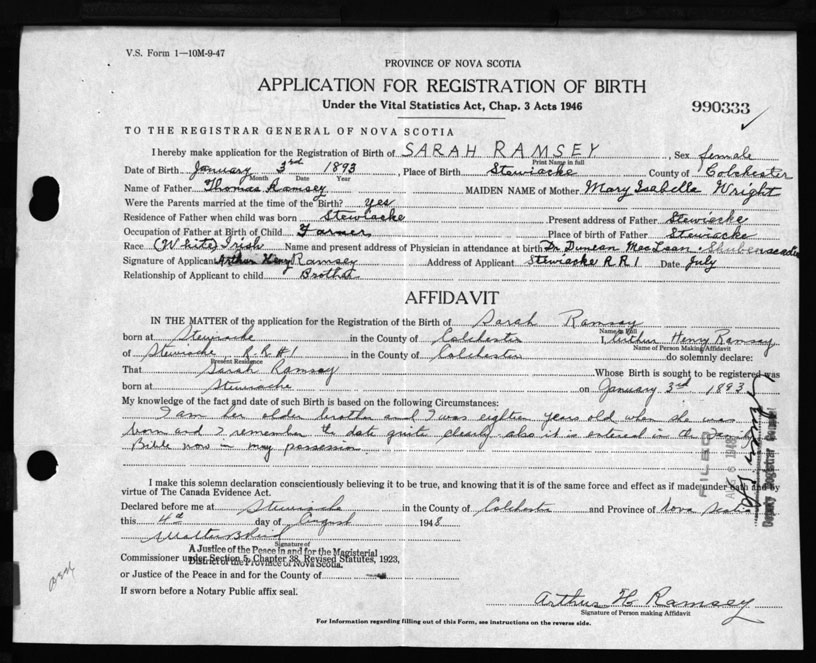 V.S. Form 1—10M-9-47
PROVINCE OF NOVA SCOTIA
APPLICATION FOR REGISTRATION OF BIRTH
Under the Vital Statistics Act, Chap. 3 Acts 1946
990333
TO THE REGISTRAR GENERAL OF NOVA SCOTIA
I hereby make application for the Registration of Birth of SARAH RAMSEY, Sex female
Print Name in full
Date of Birth January 3rd 1893, Place of Birth Stewiacke County of Colchester
Month Date Year
Name of Father Thomas Ramsey MAIDEN NAME of Mother Mary Isabella Wright
Were the Parents married at the time of the Birth? Yes
Residence of Father when child was born Stewiacke Present address of Father Stewiacke
Occupation of Father at Birth of Child Farmer Place of birth of Father Stewiacke
Race (White) Irish Name and present address of Physician in attendance at birth Dr Duncan MacLean - Shubenacadie
Signature of Applicant Arthur Henry Ramsey Address of Applicant Stewiacke R R 1 Date July
Relationship of Applicant to child Brother
AFFIDAVIT
IN THE MATTER of the application for the Registration of the Birth of Sarah Ramsay
Name in Full
born at Stewiacke in the County of Colchester I, Arthur Henry Ramsay
Name of Person Making Affidavit
of Stewiacke R.R #1 in the County of Colchester do solemnly declare:
Present Residence
That Sarah Ramsay Whose Birth is sought to be registered was
born at Stewiacke on January 3rd 1893
My knowledge of the fact and date of such Birth is based on the following Circumstances:
I am her older brother and I was eighteen years old when she was
born and I remember the date quite clearly also it is entered in the Family
Bible now in my possession
I make this solemn declaration conscientiously believing it to be true, and knowing that it is of the same force and effect as if made under oath and by
virtue of The Canada Evidence Act.
Declared before me at Stewiacke in the County of Colchester and Province of Nova Scotia
this 4th day of August 1948
Signature of
A Justice of the Peace in and for the Magisterial
Commissioner under Section 5, Chapter 38, Revised Statutes, 1923,
District of the Province of Nova Scotia.
or Justice of the Peace in and for the County of
If sworn before a Notary Public affix seal.
Arthur H Ramsey
Signature of Person making Affidavit
For Information regarding filling out of this Form, see instructions on the reverse side.
FILED
1948
Deputy Registrar General